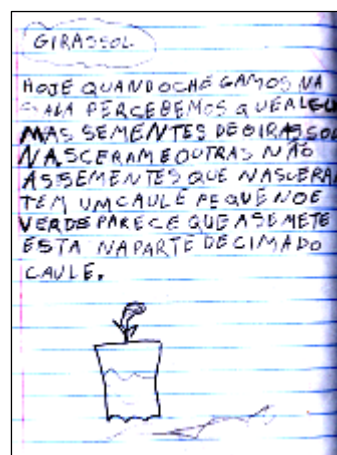 GIRASSOL
HOJE QUANDOCHEGAMOS NA
SALA PERCEBEMOS QUEALGU
MAS SEMENTES DEGIRASSOL
NASCERAMEOUTRAS NÃO
ASSEMENTES QUE NASCERAM
TEM UMCAULE PEQUENOE
VERDEPARECE QUE ASEMETE
ESTA NAPARTE DECIMADO
CAULE.